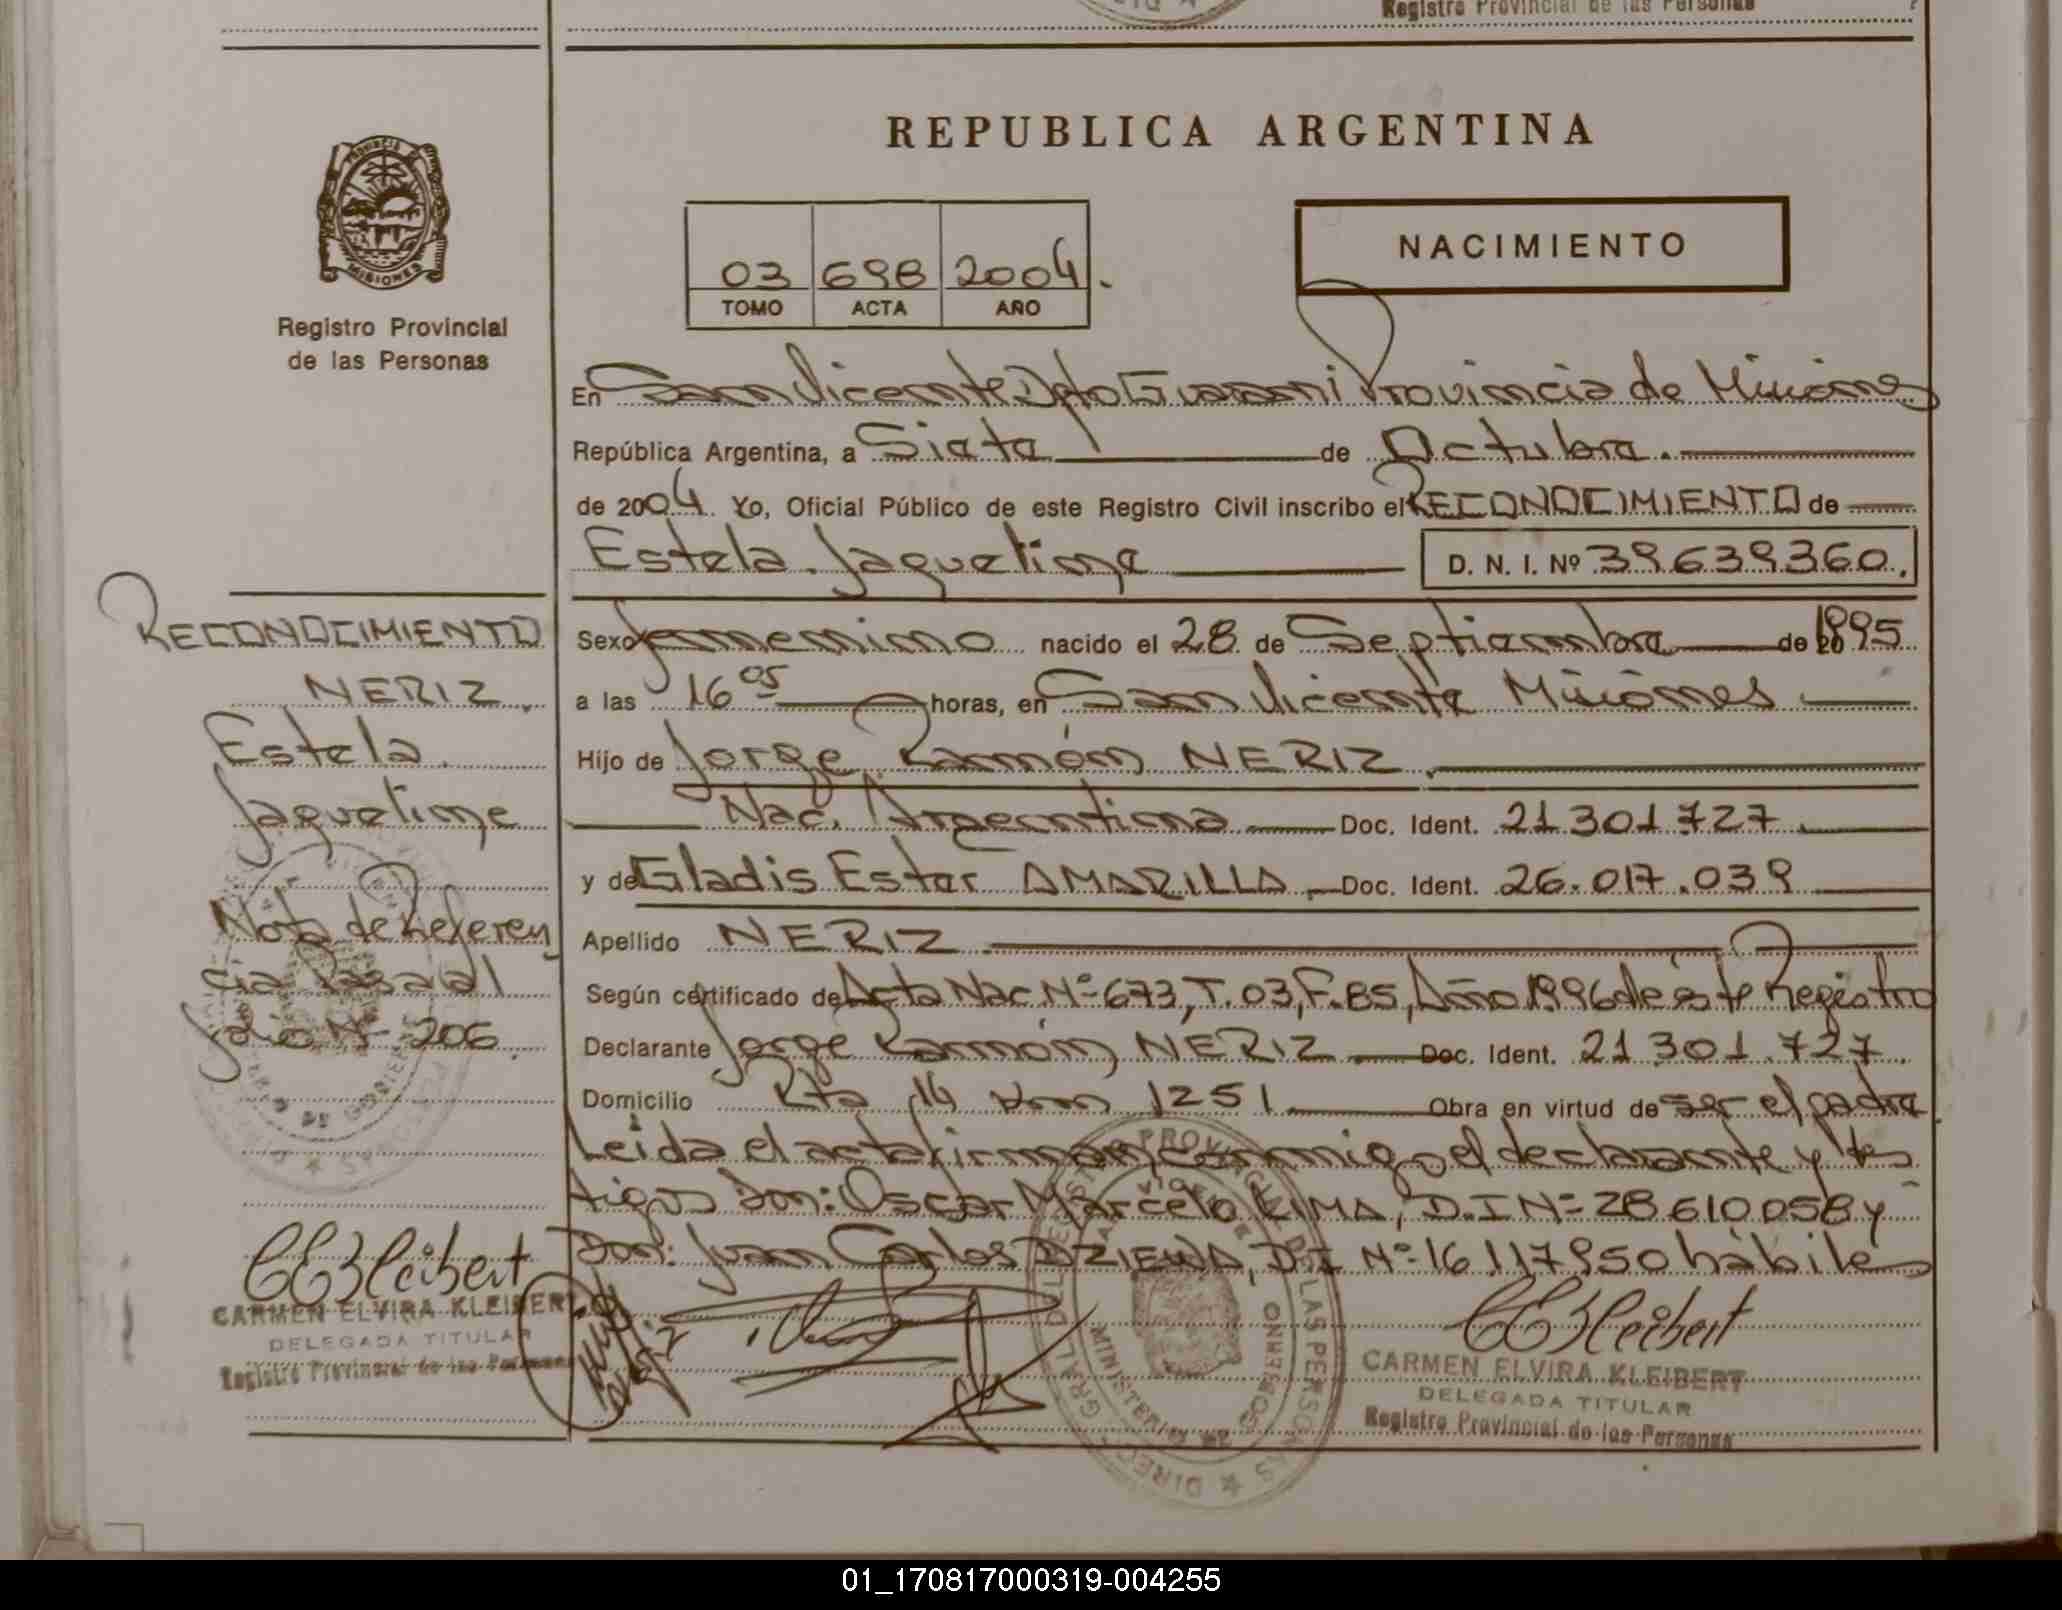 Registro Provincial de las Personas
REPUBLICA ARGENTINA
PROVINCIA DE
MISIONES
Registro Provincial
de las Personas
03 698 2004.
TOMO ACTA AÑO
NACIMIENTO
En San Vicente Dpto Guarani Provincia de Misiones
República Argentina, a Siete de Octubre.
de 2004. Yo, Oficial Público de este Registro Civil inscribo el RECONOCIMIENTO de
Estela Jaqueline D. N. I. Nº 39639360.
Sexo femenino nacido el 28 de Septiembre de 20 1995
a las 16 05 horas, en San Vicente Misiones
Hijo de Jorge Ramón NERIZ.
Nac. Argentina Doc. Ident. 21 301 727
y de Gladis Ester AMARILLA, Doc. Ident. 26.017.039
Apellido NERIZ
Según certificado de Acta Nac. Nº 673, T. 03, F. 85, Año 1996 de este Registro
Declarante Jorge Ramón NERIZ Doc. Ident. 21 301 727
Domicilio Rta 14 Km 1251 Obra en virtud de ser el padre
Leida el acta firman conmigo el declarante y tes
tigos Don: Oscar Marcelo LIMA, D.I Nº 28610058 y
Don: Juan Carlos D.I Nº 16.117950 hábiles
RECONOCIMIENTO
NERIZ.
Estela
Jaqueline
Nota de Referen
cia Pasa al
folio Nº 206.
CEKleibert
CARMEN ELVIRA KLEIBERT
DELEGADA TITULAR
Registro Provincial de las Personas
CEKleibert
CARMEN ELVIRA KLEIBERT
DELEGADA TITULAR
Registro Provincial de las Personas
01_170817000319-004255